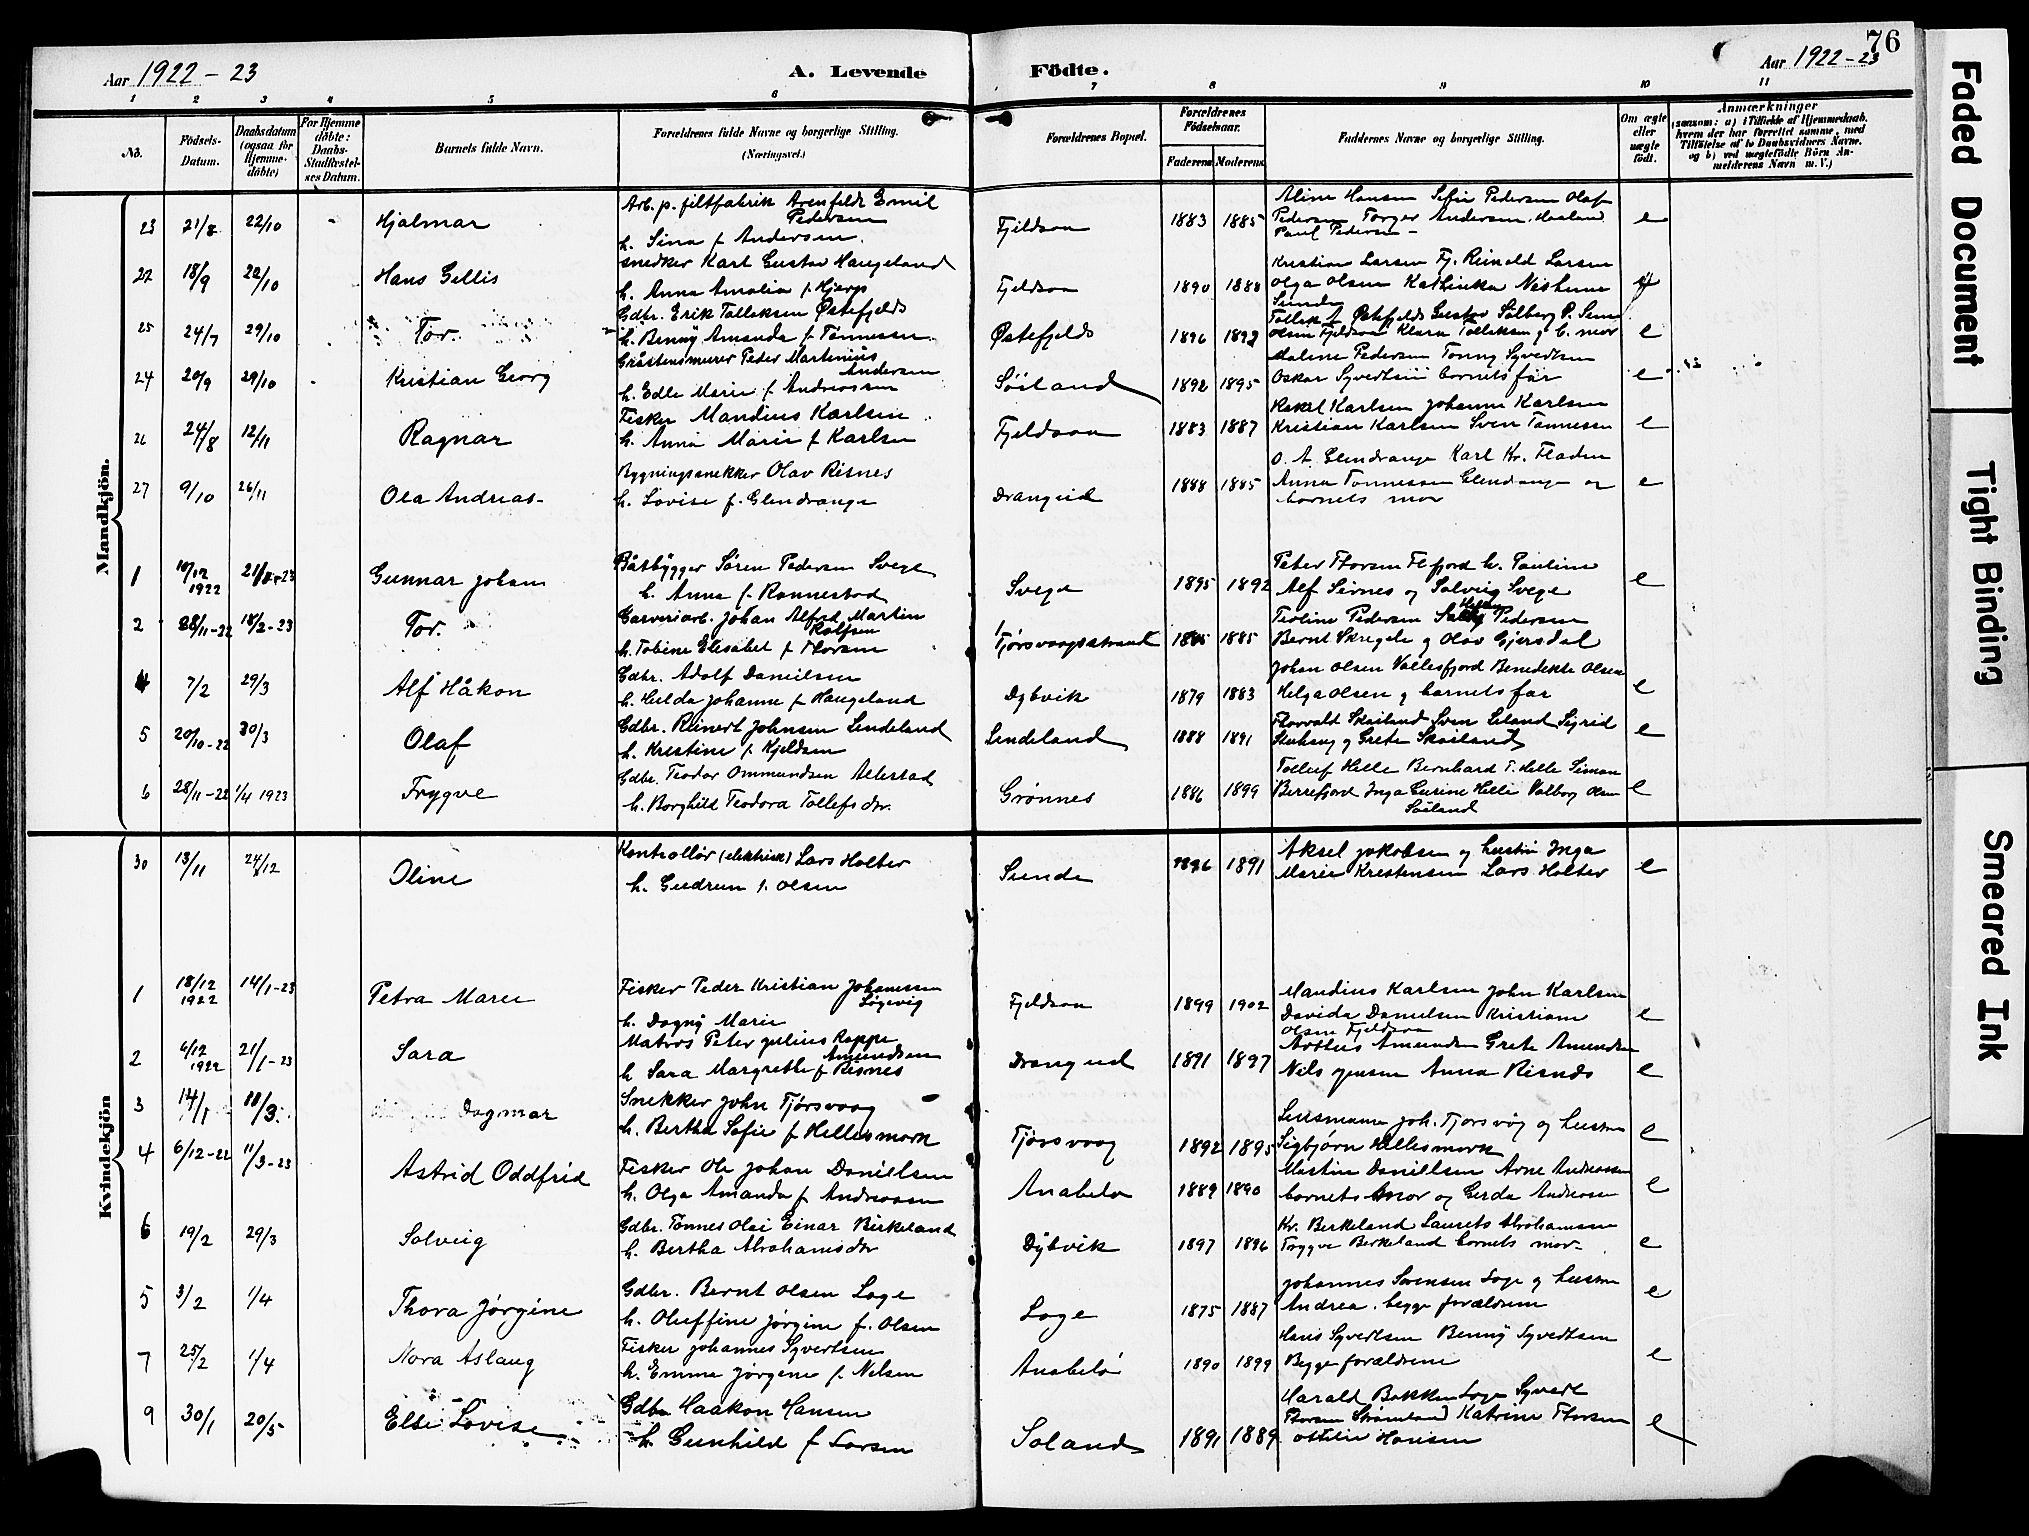 76
Aar 1922-23 A. Levende Födte. Aar 1922-23
1 2 3 4 5 6 7 8 9 10 11
No. Födsels-Datum. Daabsdatum (ogsaa for Hjemme-döbte) For Hjemme döbte: Daabs-Stadfæstel-ses Datum. Barnets fulde Navn. Forældrenes fulde Navne og borgerlige Stilling. (Næringsvei.) Forældrenes Bopæl. Forældrenes Födselsaar. Faderens Moderens Faddernes Navne og borgerlige Stilling. Om ægte eller uægte födt. Anmærkninger (saasom: a) i Tilfælde af Hjemmedaab, hvem der har forrettet samme, med Tilföielse af to Daabsvidners Navne, og b) ved uægtefödte Börn An-melderens Navn m. V.)
Mandkjön.
23 21/8 22/10 Hjalmar Arb. p. filtfabrik Arenfeldt Emil Pedersen
h. Sina f. Andersen. Fjeldsaa 1883 1885 Aline Hansen Sofie Pedersen Olaf
Pedersen Torger Andersen, Haaland
Paul Pedersen - e
22 18/9 22/10 Hans Gellis Snedker Karl Gustav Haugeland
h. Anna Amalia f. Fjeldsaa 1890 1888 Kristian Larsen Fj. Reinald Larsen
Olga Olsen Kathinka
Sunde
25 24/7 29/10 Tor. Gdbr. Erik Tolleksen Østefjelds
h. Benny Amanda f. Tønnessen Østefjelds 1896 1892 Tollek A. Østefjelds Gustav Solberg P. Sunde
Olsen Fjeldsaa Klara Tolleksen g b. mor e
24 20/9 29/10 Kristian Georg Gråstensmurer Peder Martinius Andersen
h. Edle Marie f. Andreassen Søiland 1892 1895 Malene Pedersen Tonny Syvertsen
Oskar Syvertsen barnets far e
26 24/8 12/11 Ragnar Fisker Mandius Karlsen
h. Anna Marie f. Karlsen Fjeldsaa 1883 1887 Rakel Karlsen Johanne Karlsen
Kristian Karlsen Sven Tønnessen e
27 9/10 26/11 Ola Andreas- Bygningssnekker Olav Risnes
h. Lovise f. Glendrange Drangeid 1888 1885 O. A. Glendrange Karl Kr. Fladen
Anna Tønnessen Glendrange og
barnets mor e
1 10/12 1922 21/1-23 Gunnar Johan Båtbygger Søren Pedersen Svege
h. Anna f. Rannestad Svege 1895 1892 Peter Thorsen Flefjord h. Pauline
Alf Sirnes og Solveig Svege e
2 28/11-22 18/2-23 Tor. Garveriarb. Johan Alfred Martin Rolfsen
h. Tobine Elisabet f. Thorsen Tjørsvaagstrand 1885 1885 Teoline Pedersen Helga Pedersen
Bernt Skregele g Olav Gjersdal
4 7/2 29/3 Alf Håkon Gdbr. Adolf Danielsen
h. Hulda Johanne f. Haugeland Dybvik 1879 1883 Johan Olsen Vollesfjord Benedikte Olsen
Helga Olsen g barnets far e
5 20/10-22 30/3 Olaf Gdbr. Reinert Johnsen Lindeland
h. Kristine f. Kjeldsen Lindeland 1888 1891 Thorvald Skailand Sven Leland Sigrid
g Grete Skailand e
6 28/11-22 1/4 1923 Trygve Gdbr. Teodor Ommundsen Allestad
h. Borghild Teodora Tollefs dtr. Grønnes 1886 1899 Tollef Helle Bernhard T. Helle Simon
Berrefjord Inga Gurine Helle Valborg Olsen
Søiland e
Kvindekjön
30 13/11 24/12 Oline Kontrollør (elektrisk) Lars Holter
h. Gudrun f. Olsen Sunde 1886 1891 Aksel Jakobsen og hustru Inga
Marie Kristensen Lars Holter e
1 18/12 1922 14/1-23 Petra Marie Fisker Peder Kristian Johannessen Løgevig
h. Dagny Marie Fjeldsaa 1899 1902 Mandius Karlsen John Karlsen
Davida Danielsen Kristiane
Olsen Fjeldsaa e
2 6/12 1922 21/1-23 Sara Matros Peter Julius Rappe Amundsen
h. Sara Margrethe f. Risnes Drangeid 1891 1897 Amundsen Grete Amundsen
Nils Jensen Anna Risnes e
3 14/1 11/3. Dagmar Snekker John Tjørsvaag
h. Bertha Sofie f. Hellesmork Tjørsvaag 1892 1895 Lensmann Joh. Tjørsvåg og hustru
Sigbjørn Hellesmork e
4 6/12-22 11/3-23 Astrid Oddfrid Fisker Ole Johan Danielsen
h. Olga Amanda f. Andreassen Anabeløe 1889 1890 Martin Daniellsen Arne Andreassen
barnets mor og Gerda Andreassen e
6 19/2 29/3 Solveig Gdbr. Tønnes Olai Einar Birkeland
h. Bertha Abrahamsdtr Dybvik 1897 1896 Kr. Birkeland Laurits Abrahamsen
Trygve Birkeland barnets mor- e
5 3/2 1/4 Thora Jørgine Gdbr. Bernt Olsen Loge
h. Oluffine Jørgine f. Olsen Loge 1875 1887 Johannes Svensen Loge og hustru
Andrea. begge forældrene e
7 25/2 1/4 Nora Aslaug Fisker Johannes Syvertsen
h. Emma Jørgene f. Nilsen Anabeløe 1890 1899 Hans Syvertsen Benny Syvertsen
Begge forældrene e
9 30/1 20/5 Else Lovise Gdbr Haakon Hansen
h. Gunhild f Larsen Soland 1891 1889 Harald Bakken Loge Syvert
Thorsen Strømland Katrine Thorsen
Ottilie Hansen e
Faded Document
Tight Binding
Smeared Ink